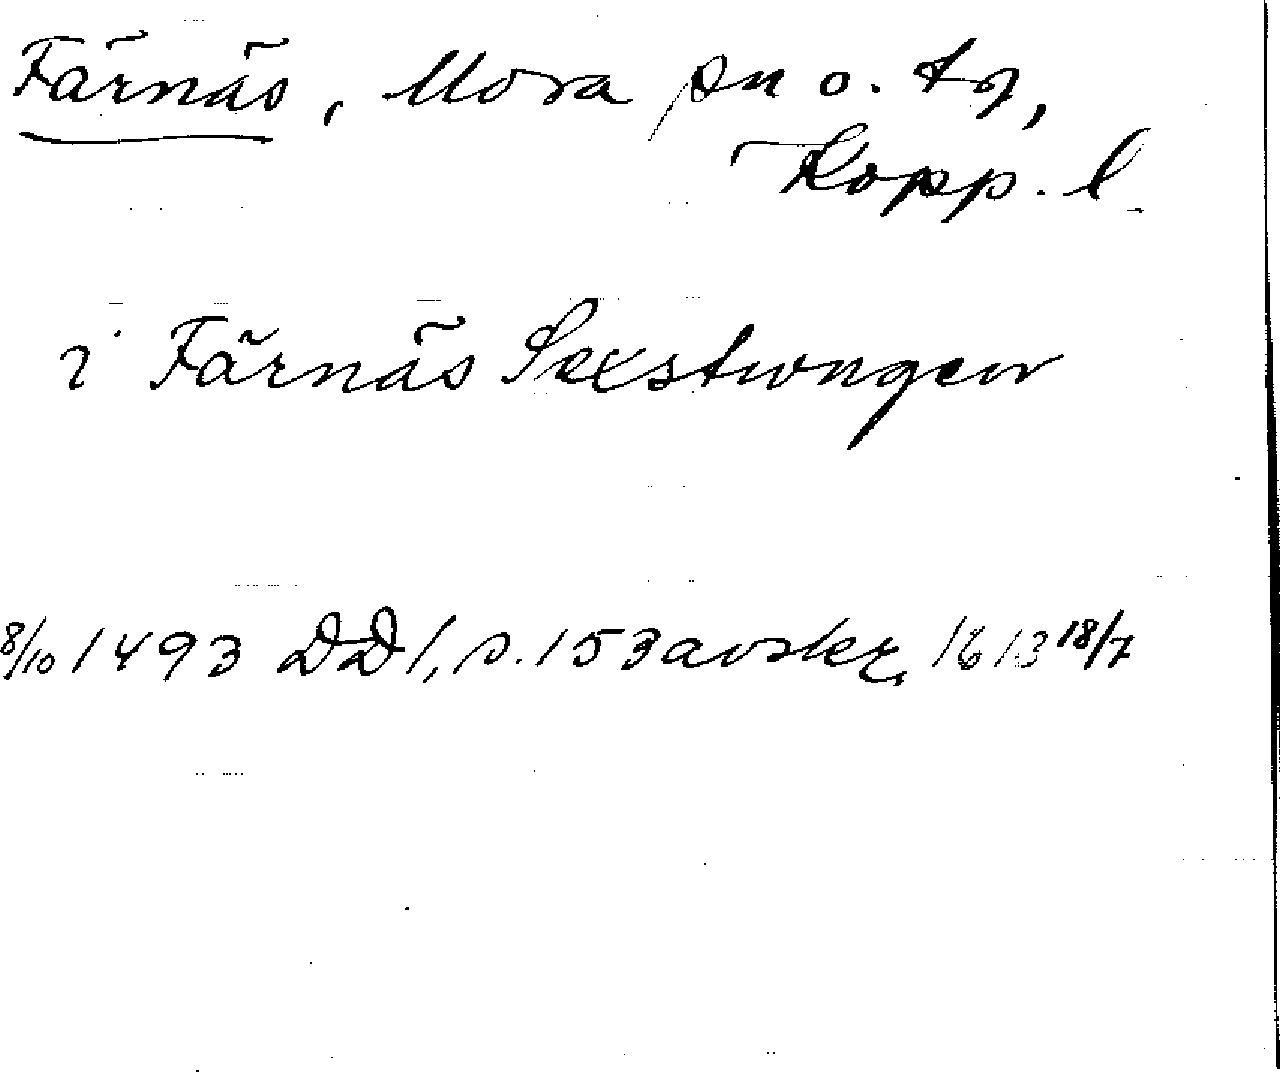 Färnäs, Mora sn o. tg,
Kopp. l.
i Färnäs Sexstwngen
8/10 1493 DD1, s. 153 avskr. 1613 18/7